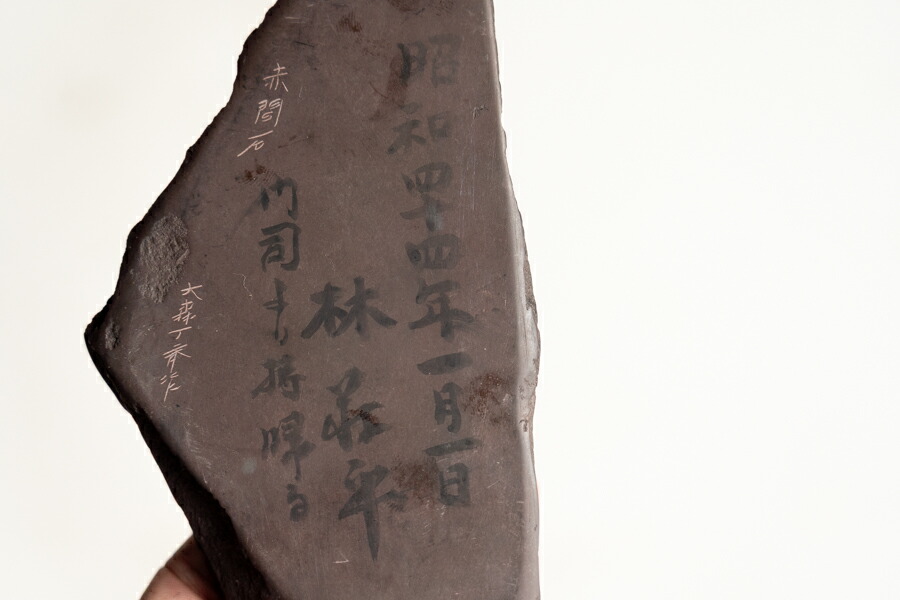 昭和四十四年一月一日
林 荘平
門司より持帰る
赤間石
大森丁斎作